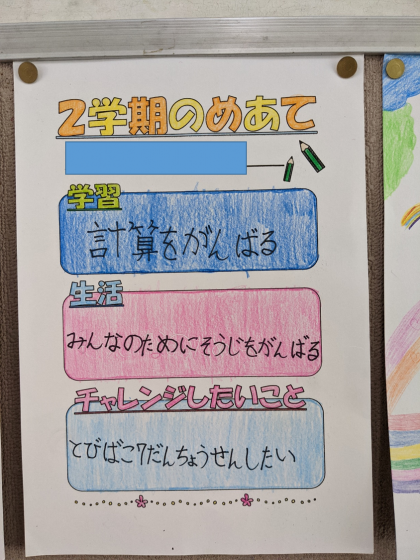 2学期のめあて
学習
計算をがんばる
生活
みんなのためにそうじをがんばる
チャレンジしたいこと
とびばこ7だんちょうせんしたい